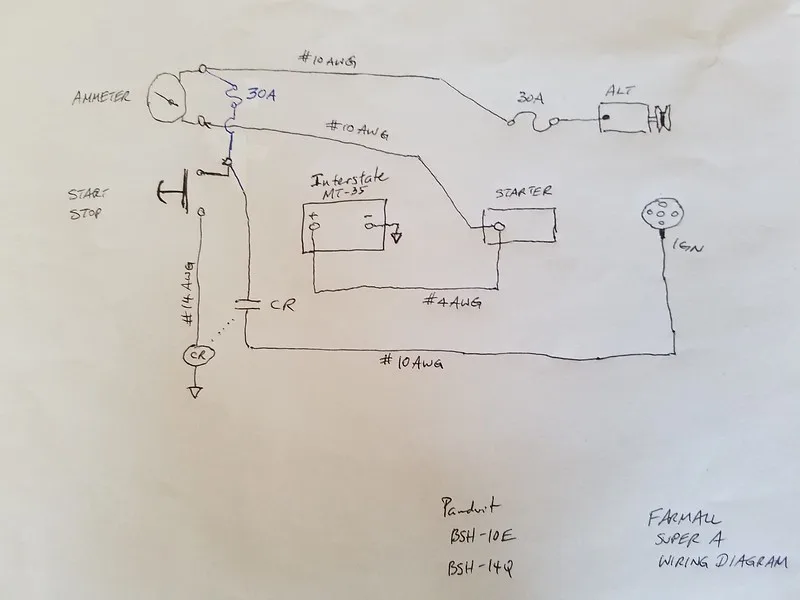 #10 AWG
AMMETER
30A
30A
ALT
#10 AWG
Interstate
MT-35
START
STOP
+ -
STARTER
IGN
#14 AWG
CR
#4 AWG
CR
#10 AWG
Panduit
BSH-10E
BSH-14Q
FARMALL
SUPER A
WIRING DIAGRAM